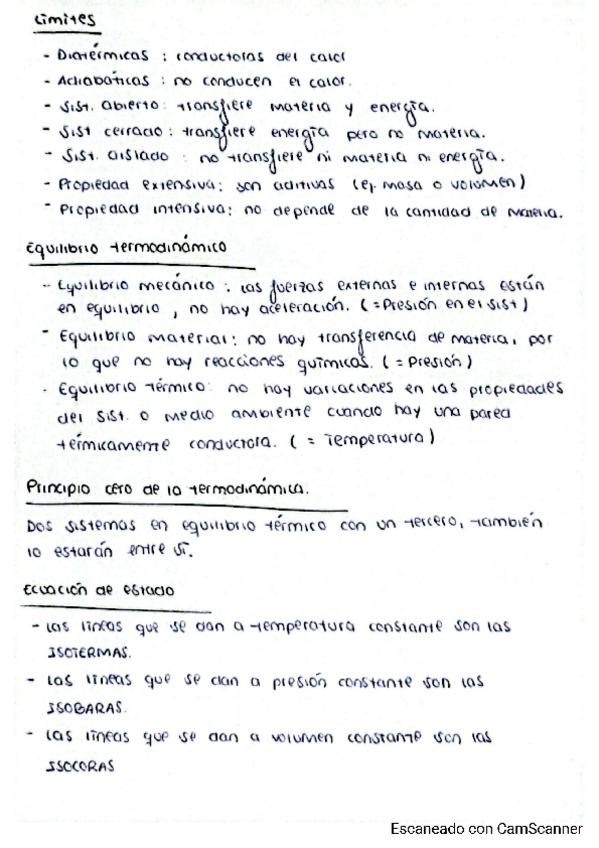 Límites
- Diatérmicas : conductoras del calor
- Adiabáticas : no conducen el calor.
- Sist. abierto : transfiere materia y energía.
- Sist cerrado : transfiere energía pero no materia.
- Sist. aislado : no transfiere ni materia ni energía.
- Propiedad extensiva : son aditivas (ej. masa o volumen)
- Propiedad intensiva : no depende de la cantidad de materia.
Equilibrio termodinámico
- Equilibrio mecánico : las fuerzas externas e internas están
en equilibrio, no hay aceleración. (=Presión en el sist)
- Equilibrio material : no hay transferencia de materia, por
lo que no hay reacciones químicas. (= Presión)
- Equilibrio térmico: no hay variaciones en las propiedades
del sist. o medio ambiente cuando hay una pared
térmicamente conductora. ( = Temperatura)
Principio cero de la termodinámica.
Dos sistemas en equilibrio térmico con un tercero, también
lo estarán entre sí.
Ecuación de estado
- Las líneas que se dan a temperatura constante son las
ISOTERMAS.
- Las líneas que se dan a presión constante son las
ISOBARAS.
- Las líneas que se dan a volumen constante son las
ISOCORAS
Escaneado con CamScanner